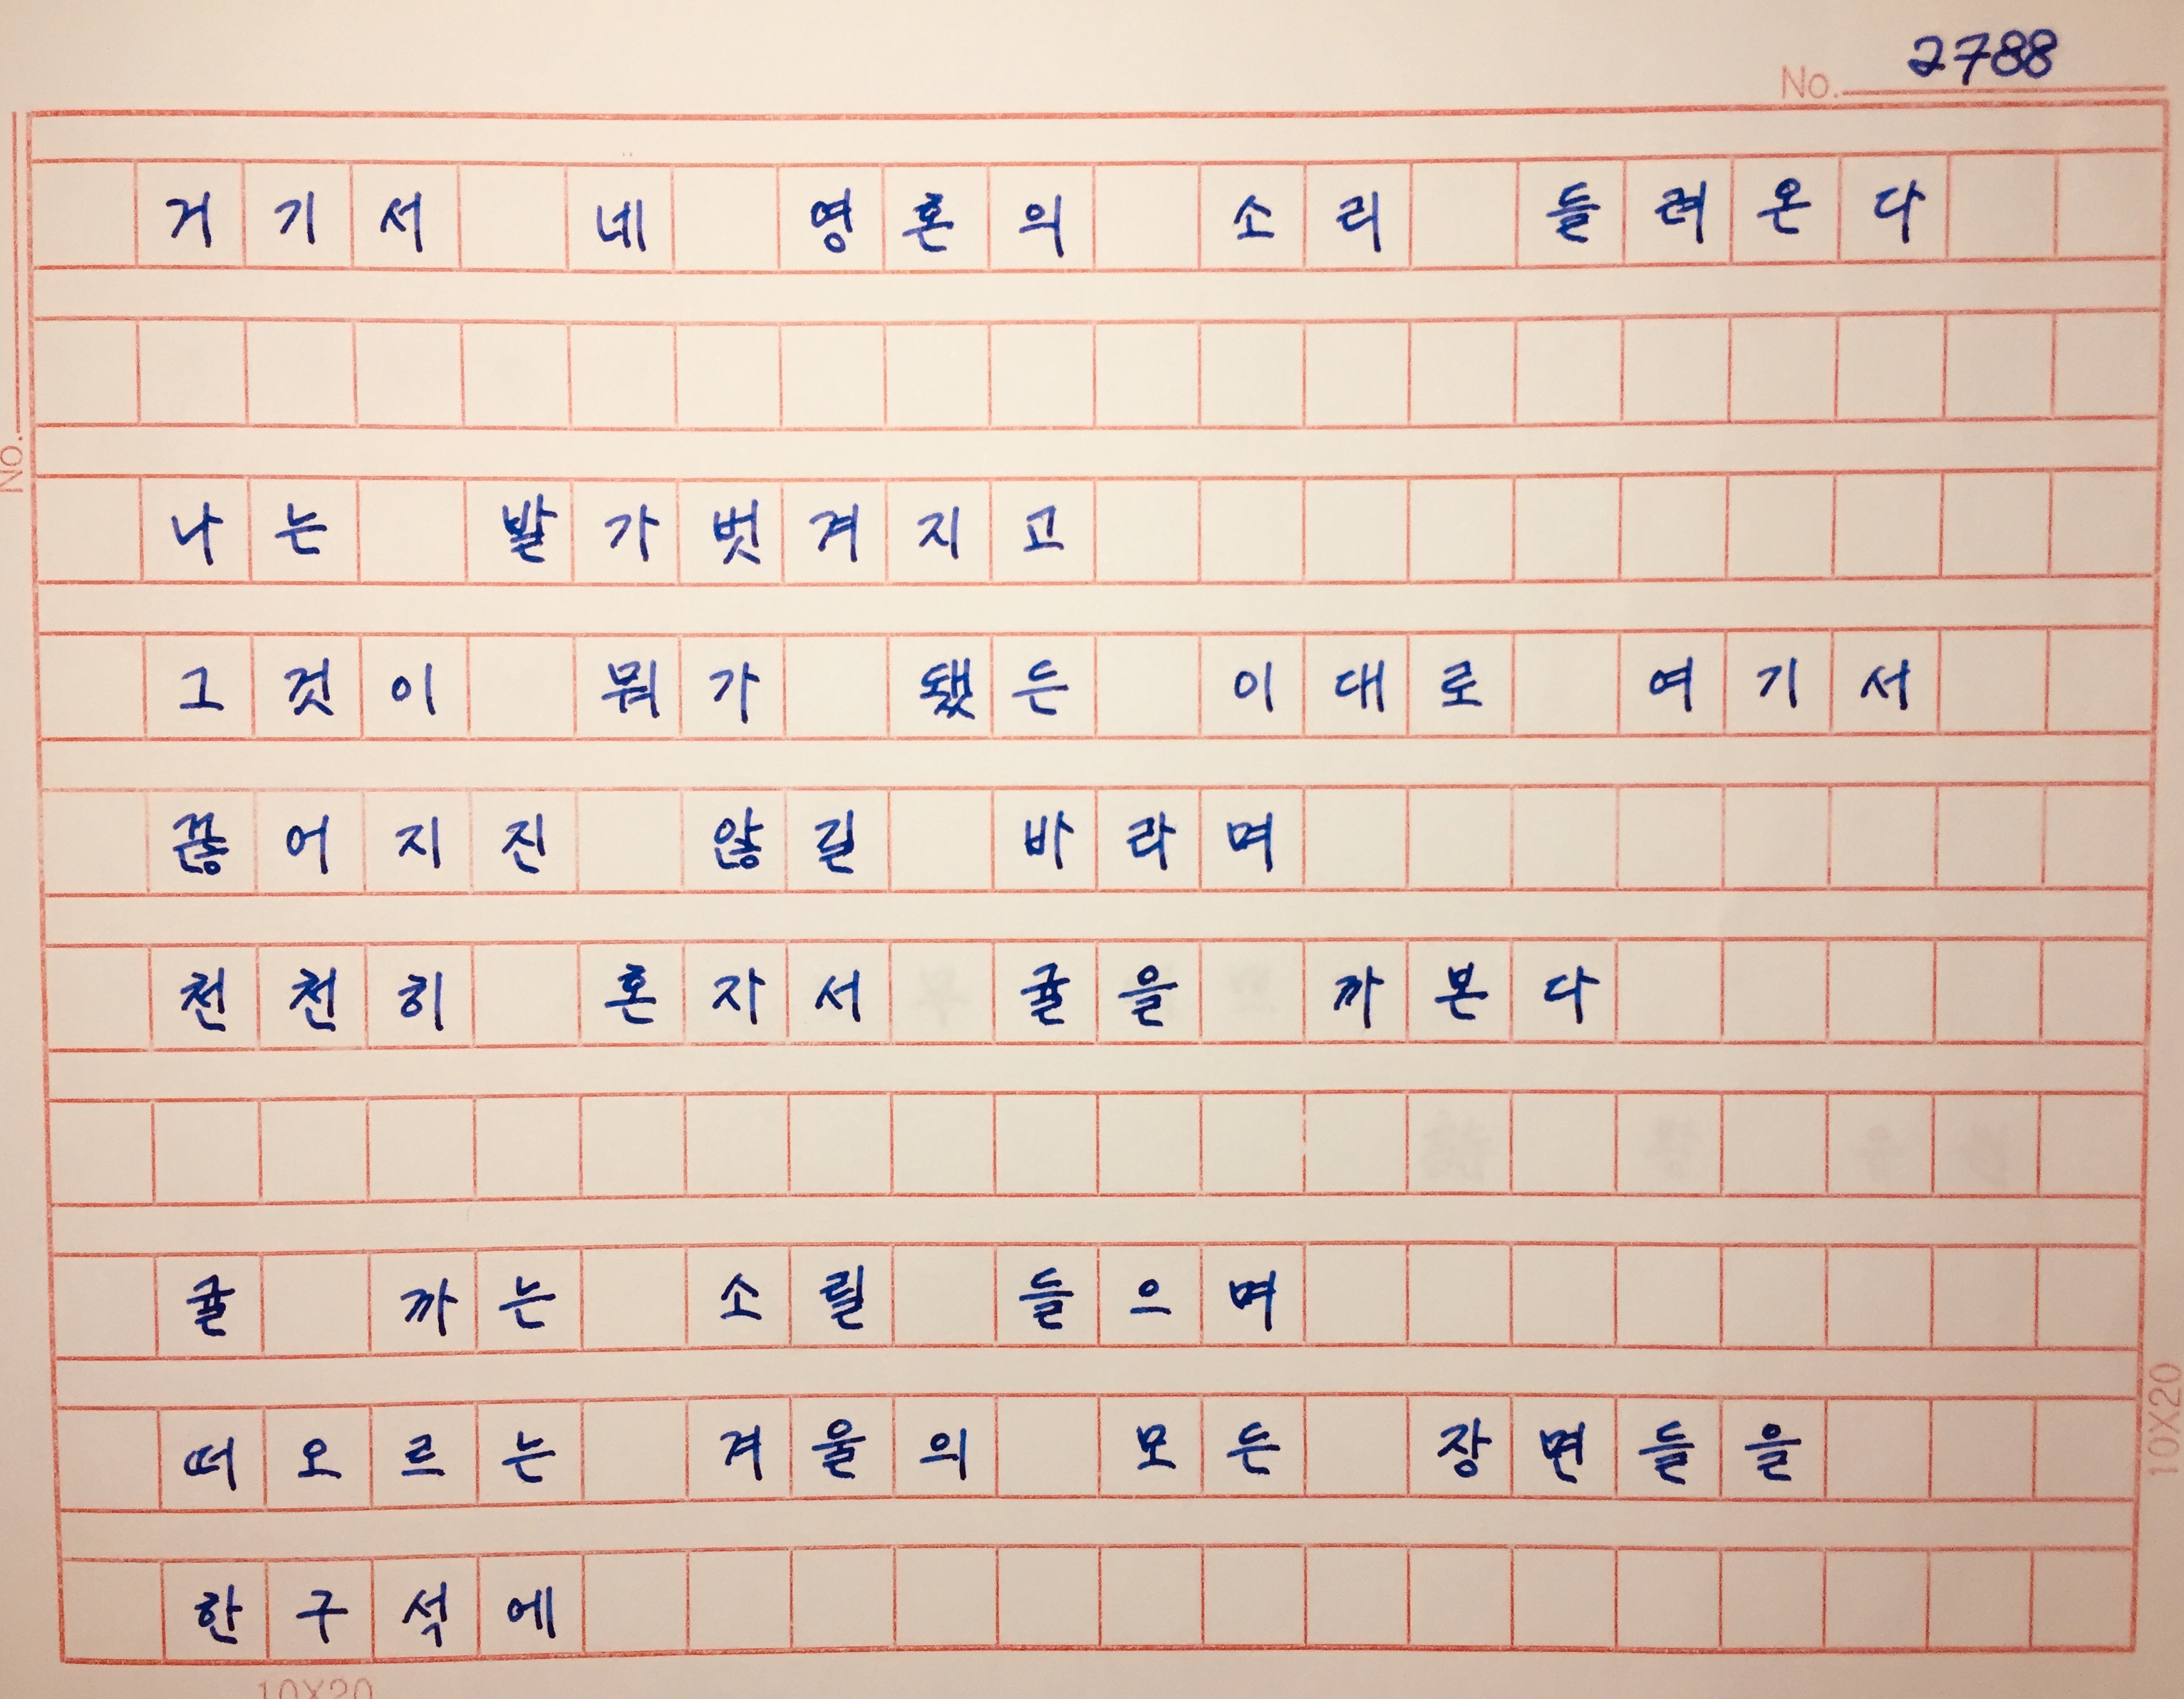 No. 2788
거기서 네 영혼의 소리 들려온다
나는 발가벗겨지고
그것이 뭐가 됐든 이대로 여기서
끊어지진 않길 바라며
천천히 혼자서 귤을 까 본다
귤 까는 소릴 들으며
떠오르는 겨울의 모든 장면들을
한구석에
No.
10X20
10X20